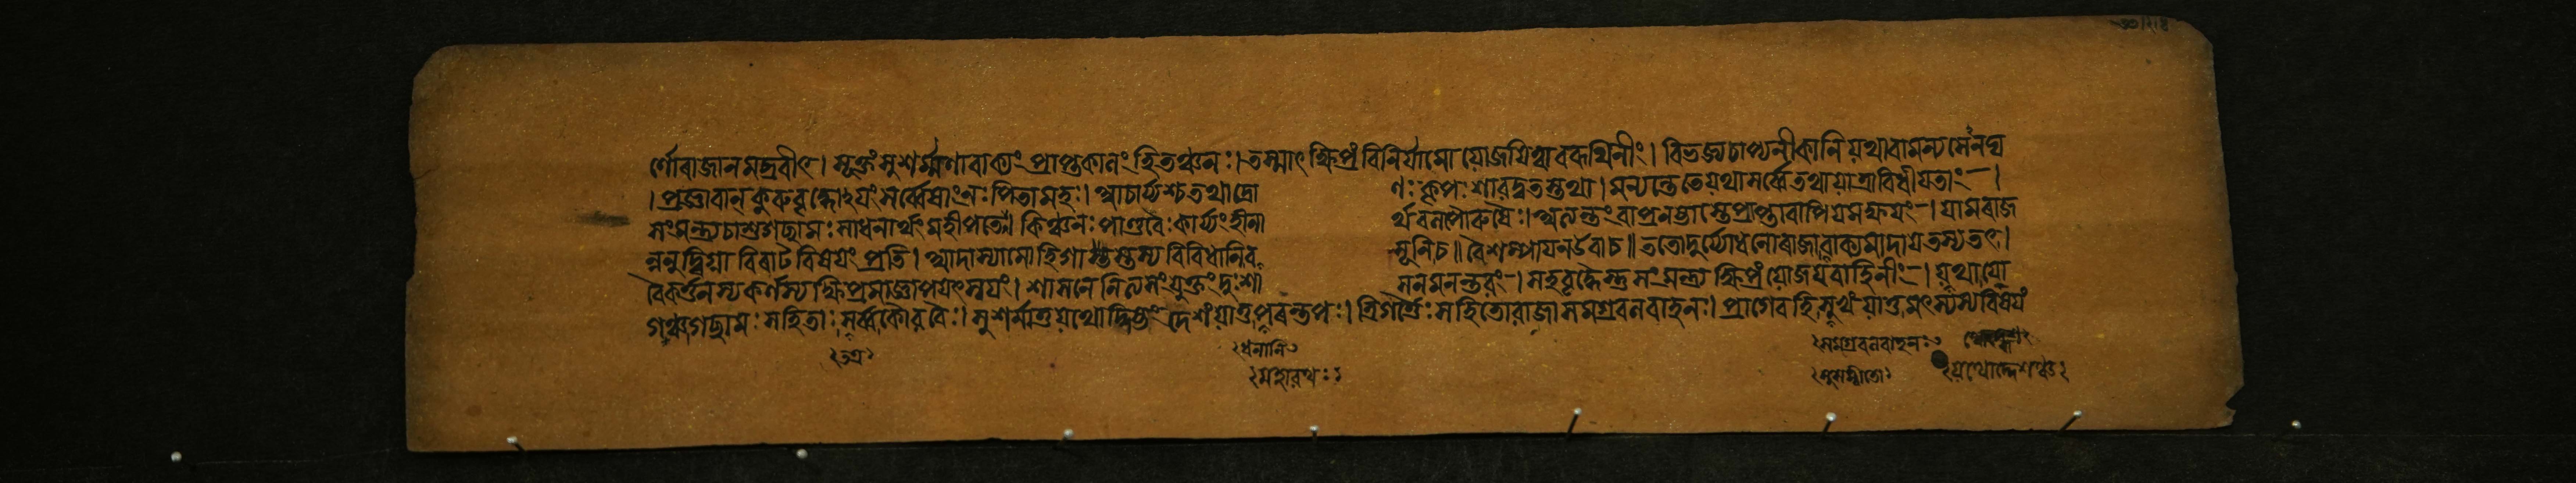 র্ণোৰাজানমব্রবীৎ। সূক্তং সুশর্ম্মণাবাক্যং প্রাপ্তকালং হিতঞ্চনঃ। তস্মাৎ ক্ষিপ্রং বিনির্যামো যোজযিত্বাবৰূথিনীং। বিভজ্যচাপ্যনীকানি যথাবামন্যসেনঘ
। প্রজ্ঞাবান্ কুৰুবৃদ্ধোঽযং সর্ব্বেষাং নঃ পিতামহঃ। আচার্য্যশ্চতথাদ্রো ণঃ কৃপঃ শাৰদ্বতস্তথা। মন্যন্তেতেযথাসর্ব্বেতথাযাত্রাবিধীযতাং।
সংমন্ত্র্যচাশুগচ্ছামঃ সাধনার্থং মহীপতেঃ। কিঞ্চনঃ পাণ্ডবৈঃ কার্য্যং হীনা র্থবলপৌৰুষৈঃ। অত্যন্তং বাপ্রনষ্টাস্তেপ্রাপ্তাবাপিযমক্ষযং। যামৰাজ
ন্ননুদ্বিগ্না বিৰাটবিষযং প্রতি। আদাস্যামোহিগাস্তস্যবিবিধানিব সূনিচ॥ বৈশম্পাযনউবাচ॥ ততোদুর্য্যোধনোৰাজাবাক্যমাদাযতস্যতৎ।
বৈকর্ত্তনস্যকর্ণস্যক্ষিপ্রমাজ্ঞাপযৎস্বযং। শাসনেনিত্যসংযুক্তং দুঃশা সনমনন্তৰং। সহবৃদ্ধৈস্তু সংমন্ত্র্য ক্ষিপ্রং যোজযবাহিনীং। যথাযো
গঞ্চগচ্ছামঃ সহিতাঃ সর্ব্বকৌৰবৈঃ। সুশর্মাতু যথোদ্দিষ্টং দেশং যাতু পৰন্তপঃ। ত্রিগর্ত্তৈঃ সহিতোৰাজাসমগ্রবলবাহনঃ। প্রাগেবহি
তত্র
ধনানি
সমগ্রবলবাহনঃ
মহাৰথঃ
সুসম্বীতো
যথোদ্দেশঞ্চ